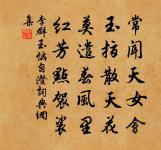 常聞天女會
玉指散天花
莫遣春風里
紅芳點袈裟
李群玉惱自澄詞典網
集